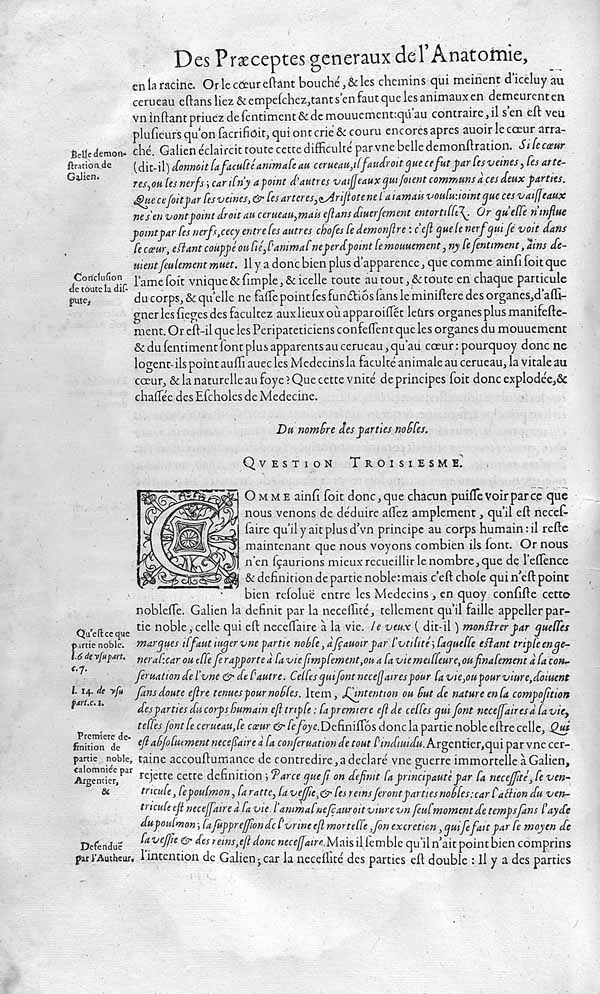 Des Præceptes generaux de l'Anatomie,
en la racine. Or le cœur estant bouché, & les chemins qui meinent d'iceluy au
cerueau estans liez & empeschez, tant s'en faut que les animaux en demeurent en
vn instant priuez de sentiment & de mouuement: qu'au contraire, il s'en est veu
plusieurs qu'on sacrifioit, qui ont crié & couru encores apres auoir le cœur arra-
ché. Galien éclaircit toute cette difficulté par vne belle demonstration. Si le cœur
(dit-il) donnoit la faculté animale au cerueau, il faudroit que ce fut par les veines, les arte-
res, ou les nerfs; car il n'y a point d'autres vaisseaux qui soient communs à ces deux parties.
Que ce soit par les veines, & les arteres, Aristote ne l'a iamais voulu: ioint que ces vaisseaux
ne s'en vont point droit au cerueau, mais estans diuersement entortillez. Or qu'elle n'influe
point par les nerfs, cecy entre les autres choses le demonstre: c'est que le nerf qui se voit dans
le cœur, estant couppé ou lié, l'animal ne perd point le mouuement, ny le sentiment, ains de-
uient seulement muet. Il y a donc bien plus d'apparence, que comme ainsi soit que
l'ame soit vnique & simple, & icelle toute au tout, & toute en chaque particule
du corps, & qu'elle ne fasse point ses functiõs sans le ministere des organes, d'assi-
gner les sieges des facultez aux lieux où apparoissẽt leurs organes plus manifeste-
ment. Or est-il que les Peripateticiens confessent que les organes du mouuement
& du sentiment sont plus apparents au cerueau, qu'au cœur: pourquoy donc ne
logent-ils point aussi auec les Medecins la faculté animale au cerueau, la vitale au
cœur, & la naturelle au foye? Que cette vnité de principes soit donc explodée, &
chassée des Escholes de Medecine.
Belle demon-
stration de
Galien.
Conclusion
de toute la dis-
pute,
Du nombre des parties nobles.
QVESTION TROISIESME.
COMME ainsi soit donc, que chacun puisse voir par ce que
nous venons de déduire assez amplement, qu'il est necess-
saire qu'il y ait plus d'vn principe au corps humain: il reste
maintenant que nous voyons combien ils sont. Or nous
n'en sçaurions mieux recueillir le nombre, que de l'essence
& definition de partie noble: mais c'est chose qui n'est point
bien resoluë entre les Medecins, en quoy consiste cette
noblesse. Galien la definit par la necessité, tellement qu'il faille appeller par-
tie noble, celle qui est necessaire à la vie. Ie veux (dit-il) monstrer par quelles
marques il faut iuger vne partie noble, à sçauoir par l'vtilité; laquelle estant triple en ge-
neral: car ou elle se rapporte à la vie simplement, ou à la vie meilleure, ou finalement à la con-
seruation de l'vne & de l'autre. Celles qui sont necessaires pour la vie, ou pour viure, doiuent
sans doute estre tenues pour nobles. Item, L'intention ou but de nature en la composition
des parties du corps humain est triple: la premiere est de celles qui sont necessaires à la vie,
telles sont le cerueau, le cœur & le foye. Definissõs donc la partie noble estre celle, Qui
est absolument necessaire à la conseruation de tout l'indiuidu. Argentier, qui par vne cer-
taine accoustumance de contredire, a declaré vne guerre immortelle à Galien,
rejette cette definition; Parce que si on definit la principauté par la necessité, le ven-
tricule, le poulmon, la ratte, la vessie, & les reins seront parties nobles: car l'action du ven-
tricule est necessaire à la vie. l'animal ne sçauroit viure vn seul moment de temps sans l'ayde
du poulmon; la suppression de l'vrine est mortelle, son excretion, qui se fait par le moyen de
la vessie & des reins, est donc necessaire. Mais il semble qu'il n'ait point bien comprins
l'intention de Galien; car la necessité des parties est double: Il y a des parties
Qu'est ce que
partie noble.
l. 6. de vsu part.
c. 7.
l. 14. de vsu
part. c. 1.
Premiere de-
finition de
partie noble,
calomniée par
Argentier,
&
Defenduë
par l'Autheur.